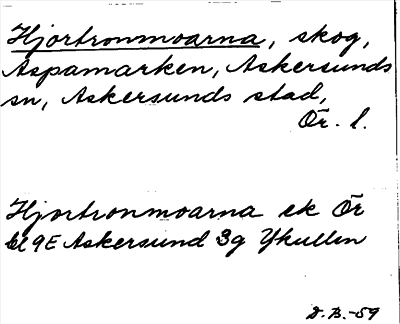 Hjortronmoarna, skog,
Aspamarken, Askersunds
sn, Askersunds stad,
Ör. l.
Hjortronmoarna ek Ör
bl 9E Askersund 3g Ykullen
D.B.-59